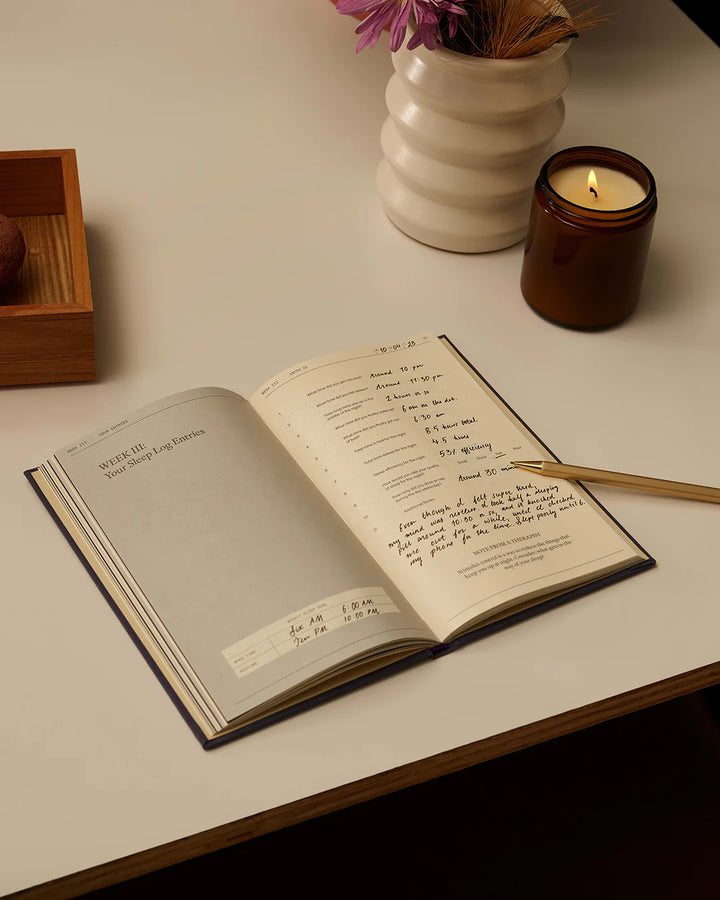 WEEK III YOUR ENTRIES
WEEK III:
Your Sleep Log Entries
WEEKLY SLEEP GOAL
WAKE TIME Six AM 6:00 AM
BEDTIME Ten PM 10:00 PM
WEEK III ENTRY 10 04 23
What time did you get into bed? Around 10 pm
What time did you fall asleep? Around 11:30 pm
How long were you up in the middle of the night? 2 hours or so
What time did you finally wake up? 6 am on the dot.
What time did you finally get out of bed? 6:30 am
Total time in bed for the night. 8.5 hours total
Total time asleep for the night. 4.5 hours
Sleep efficiency for the night. 53% efficiency
How would you rate your quality of sleep for the night? Great Good Fair Poor
How long did you doze or nap during the day yesterday? Around 30 min
Additional Notes
Even though I felt super tired,
my mind was restless. I took half a sleeping
pill around 10:30 or so, and it knocked
me out for a while, until I checked
my phone for the time. Slept poorly until 6.
NOTE FROM A THERAPIST
Stimulus control is a way to reduce the things that
keep you up at night. Consider: what gets in the
way of your sleep?